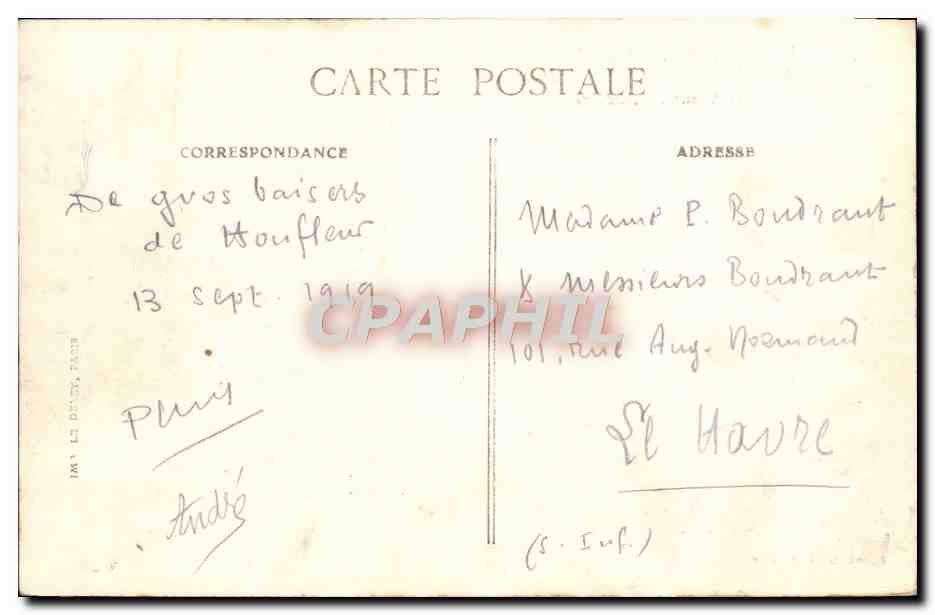 CARTE POSTALE
CORRESPONDANCE
De gros baisers
de Honfleur
13 sept. 1919
André
ADRESSE
Madame P. Boudrant
& Messieurs Boudrant
101, rue Aug. Normand
Le Havre
(S. Inf.)
PARIS
CPAPHIL